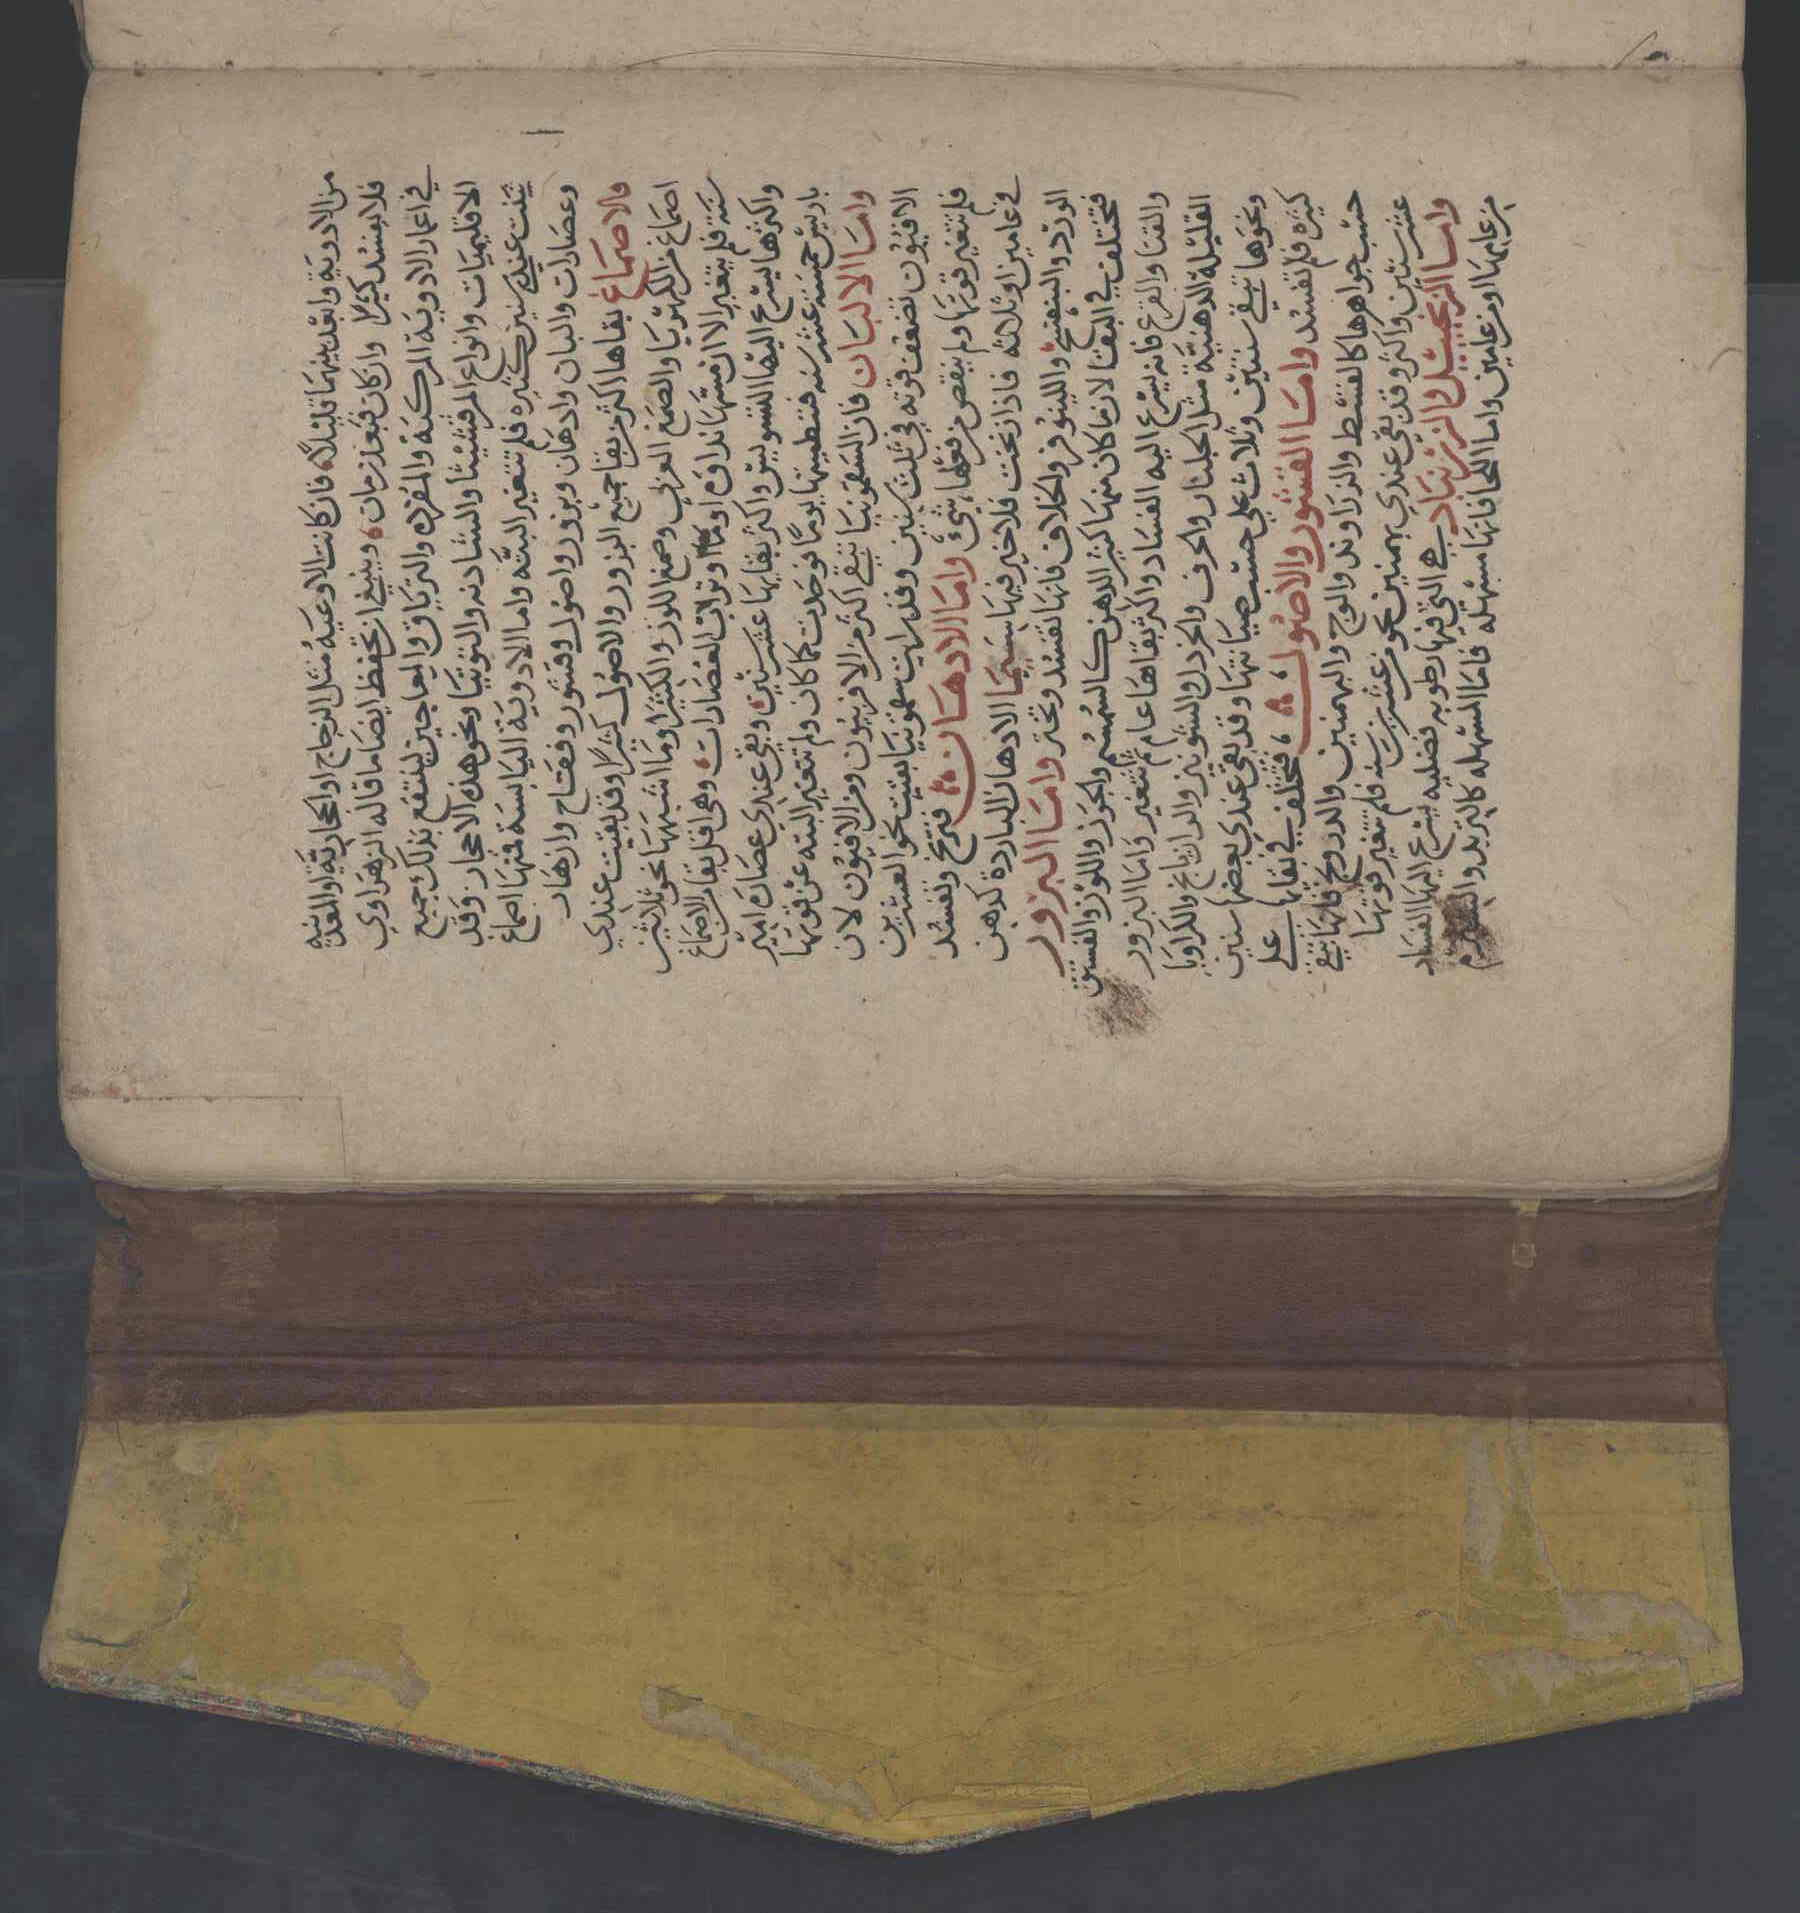 من الادوية وابعد بينهما قليلا فان كانت الاوعية مثل الزجاج او الحجارية او المعدنيه
فلا يفسد كثيرا وان كان فبعد زمان وينبغي ان تحفظ ايضا ما قاله الزهراوي
في اعمار الادوية المركبة والمفرده والترياق والمعاجين لينتفع بذلك جميع
الاقليميات وانواع المرقشيثا والشادنه والتوتيا ونحو هذه الاحجار وقد
بقيت عندي سنين كثيره فلم تتغير البته واما الادوية اليابسة فمنها اصماغ
وعصارات والبان وادهان وبزور واصول وقشور وفقاح وازهار
فالاصماغ بقاها اكثر من بقا جميع البزور والاصول كثيرا وقد بقيت عندي
اصماغ من الكهربا والصمغ العربي وصمغ اللوز والكثيرا وما اشبهها نحو ثلاثين
سنه فلم يتغير الا ان مسها نداوه او ما او تراب العصارات وهى اقل بقا من الاصماغ
واكثرها يسرع اليها التسويس واكثر بقايها عشر سنين وبقي عندي عصارة امير
باريس خمسة عشر سنه يوما فوجدت كما كان ولم تتغير البته عن قوتها
واما الالبان فان السقمونيا تبقى اكثر من الافربيون ومن الافيون لان
الافيون تضعف قوته في ثلث سنين وقد رايت سقمونيا بقيت نحو العشرين
فلم تتغير قوتها ولم ينقص من فعلها شئ واما الادهان فتزنخ وتفسد
في عامين او ثلاثه فاذا زنخت فلا خير فيها سيما الادهان الباردة كدهن
الورد والبنفسج واللينوفر والخلاف فانها تفسد وتخثر واما البزور
فتختلف في البقا لان ما كان منها كثير الدهن كالسمسم والجوز واللوز والفستق
والقثا والقرع فانه يسرع اليه الفساد واكثر بقاها عام ثم تتغير واما البزور
القليلة الدهنية مثل الجلنار والحرف والخردل والشونيز والرازيانج والكراويا
ونحوها تبقى سنتين وثلاث على حسب صيانتها وقد بقي عندي بعضها سنين
كثيره فلم تفسد واما القشور والاصول فتختلف في بقايها على
حسب جواهرها كالقسط والزراوند والوج والبهمنين والدرونج فانها تبقى
عشر سنين واكثر وقد بقي عندي بهمنين نحو من عشرين سنه فلم تتغير قوتها
واما الزنجبيل والزرنباد هي التي فيها رطوبه فضليه يسرع اليها الفساد
من عامها او من عامين واما اللحا فانها مسهله فاما المسهله كالتربد والشبرم